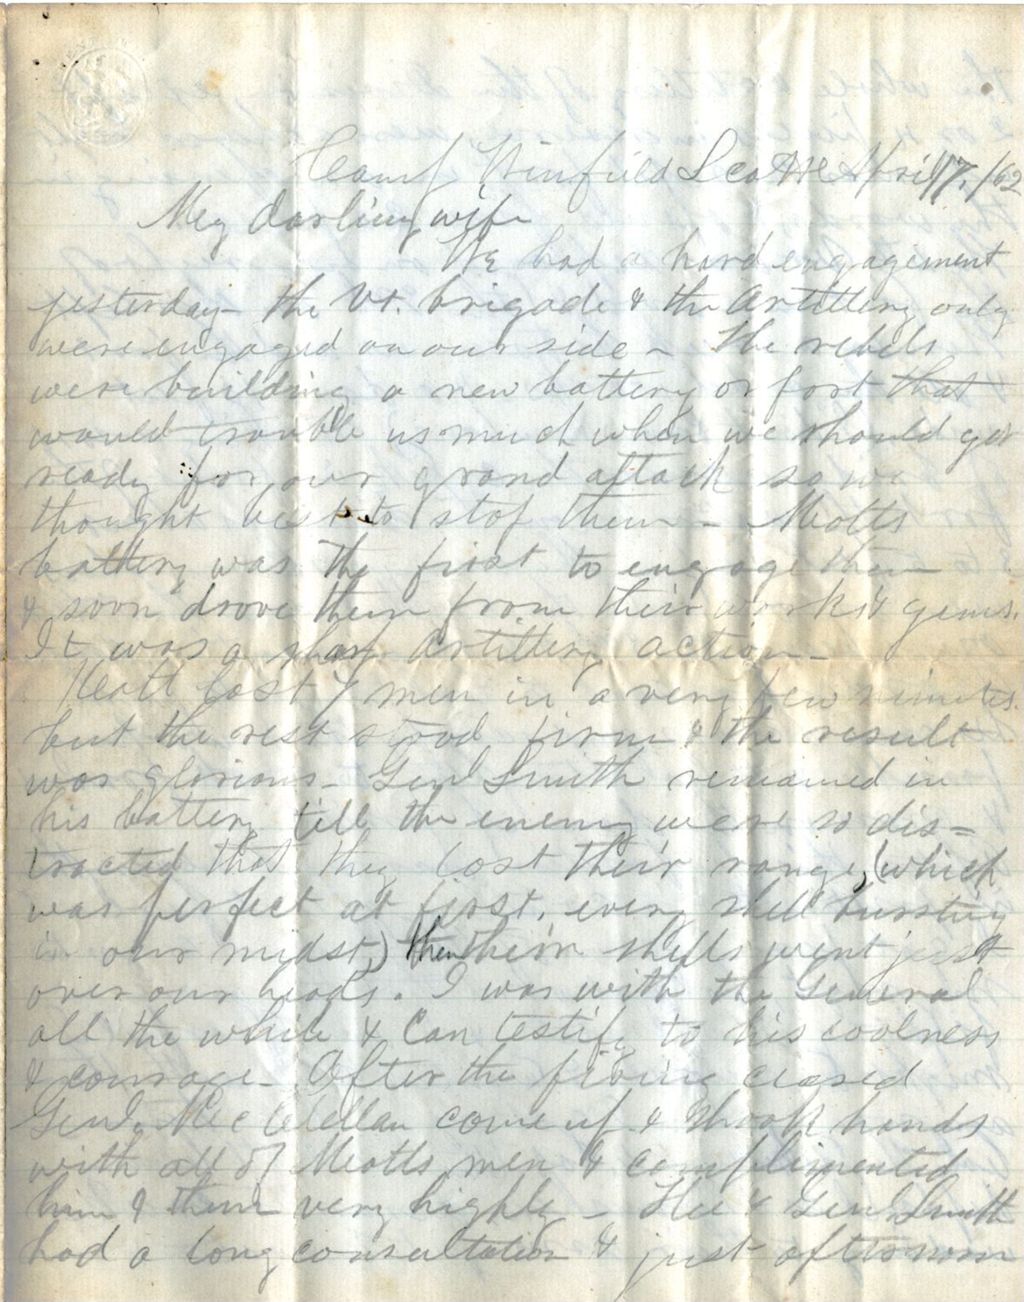 Camp Winfield Scott Va April 17, /62
My darling wife
We had a hard engagement
yesterday - the Vt. brigade & the Artillery only
were engaged on our side - The rebels
were building a new battery or fort that
would trouble us much when we should get
ready for our grand attack so we
thought best to stop them - Motts
battery was the first to engage them
& soon drove them from their works & guns.
It was a sharp Artillery action -
Mott lost 7 men in a very few minutes.
but the rest stood firm & the result
was glorious - Genl Smith remained in
his battery till the enemy were so dis=
tracted that they lost their range, (which
was perfect at first, every shell bursting
in our midst,) then their shells went just
over our heads. I was with the General
all the while & can testify to his coolness
& courage - After the firing ceased
Genl. McClellan come up & shook hands
with all of Motts men & complimented
him & them very highly - He & Genl Smith
had a long consultation & just afternoon